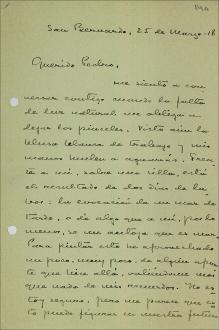 San Bernardo, 25 de Marzo-18
Querido Pedro,
me siento a con-
versar contigo cuando la falta
de luz natural me obliga a
dejar los pinceles. Visto aún la
blusa blanca de trabajo y mis
manos huelen a aguarrás. Fren-
te a mí, sobre una silla, está
el resultado de dos días de la-
bor: la evocación de un mar do-
rado, o de algo que a mí, por lo
menos, se me antoja que es mar.
Para pintar esto he aprovechado
un poco, muy poco, de algún apun-
te que hice allá, valiéndome más
que nada de mis recuerdos. No es-
toy seguro, pero me parece que es-
to puede figurar en nuestra futura